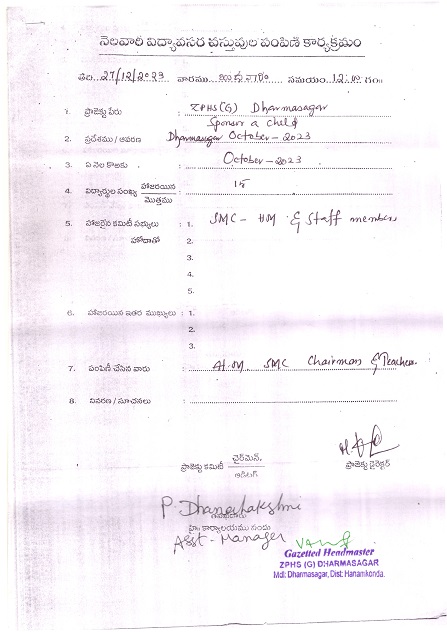 నెలవారీ విద్యావసర వస్తువుల పంపిణీ కార్యక్రమం
తేది. 27/12/2023 వారము సమయం. 12:00 గం॥
1. ప్రాజెక్టు పేరు : ZPHS(G) Dharmasagar
Sponsor a child
2. ప్రదేశము / ఆవరణ : Dharmasagar October - 2023
3. ఏ నెల కొఱకు : October - 2023
4. విద్యార్థుల సంఖ్య హాజరయిన / మొత్తము : 15
5. హాజరైన కమిటీ సభ్యులు : 1. SMC - HM & Staff members
హోదాతో 2.
3.
4.
5.
6. హాజరయిన ఇతర ముఖ్యులు : 1.
2.
3.
7. పంపిణీ చేసిన వారు : H.M. SMC Chairman & Teachers.
8. వివరణ / సూచనలు :
ప్రాజెక్టు కమిటీ ఛైర్మెన్. / ఇడిటర్
ప్రాజెక్టు డైరెక్టర్
P. Dhanalakshmi
కార్యాలయము నందు
Asst - Manager
Gazetted Headmaster
ZPHS (G) DHARMASAGAR
Mdl: Dharmasagar, Dist: Hanamkonda.